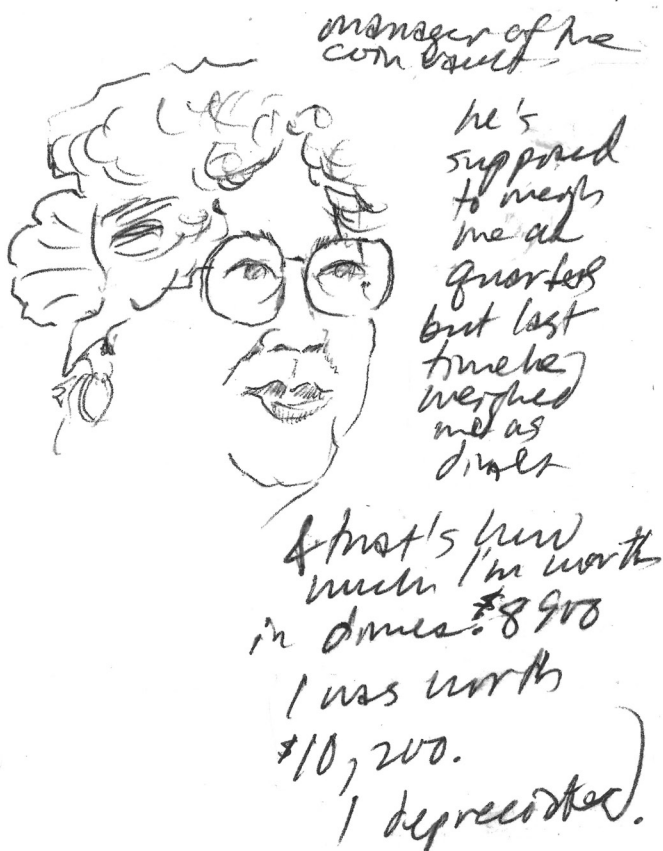 manager of the
coin vault
he's
supposed
to weigh
me as
quarters
but last
time he
weighed
me as
dimes
& that's how
much I'm worth
in dimes. $8900
I was worth
$10,200.
I depreciated.